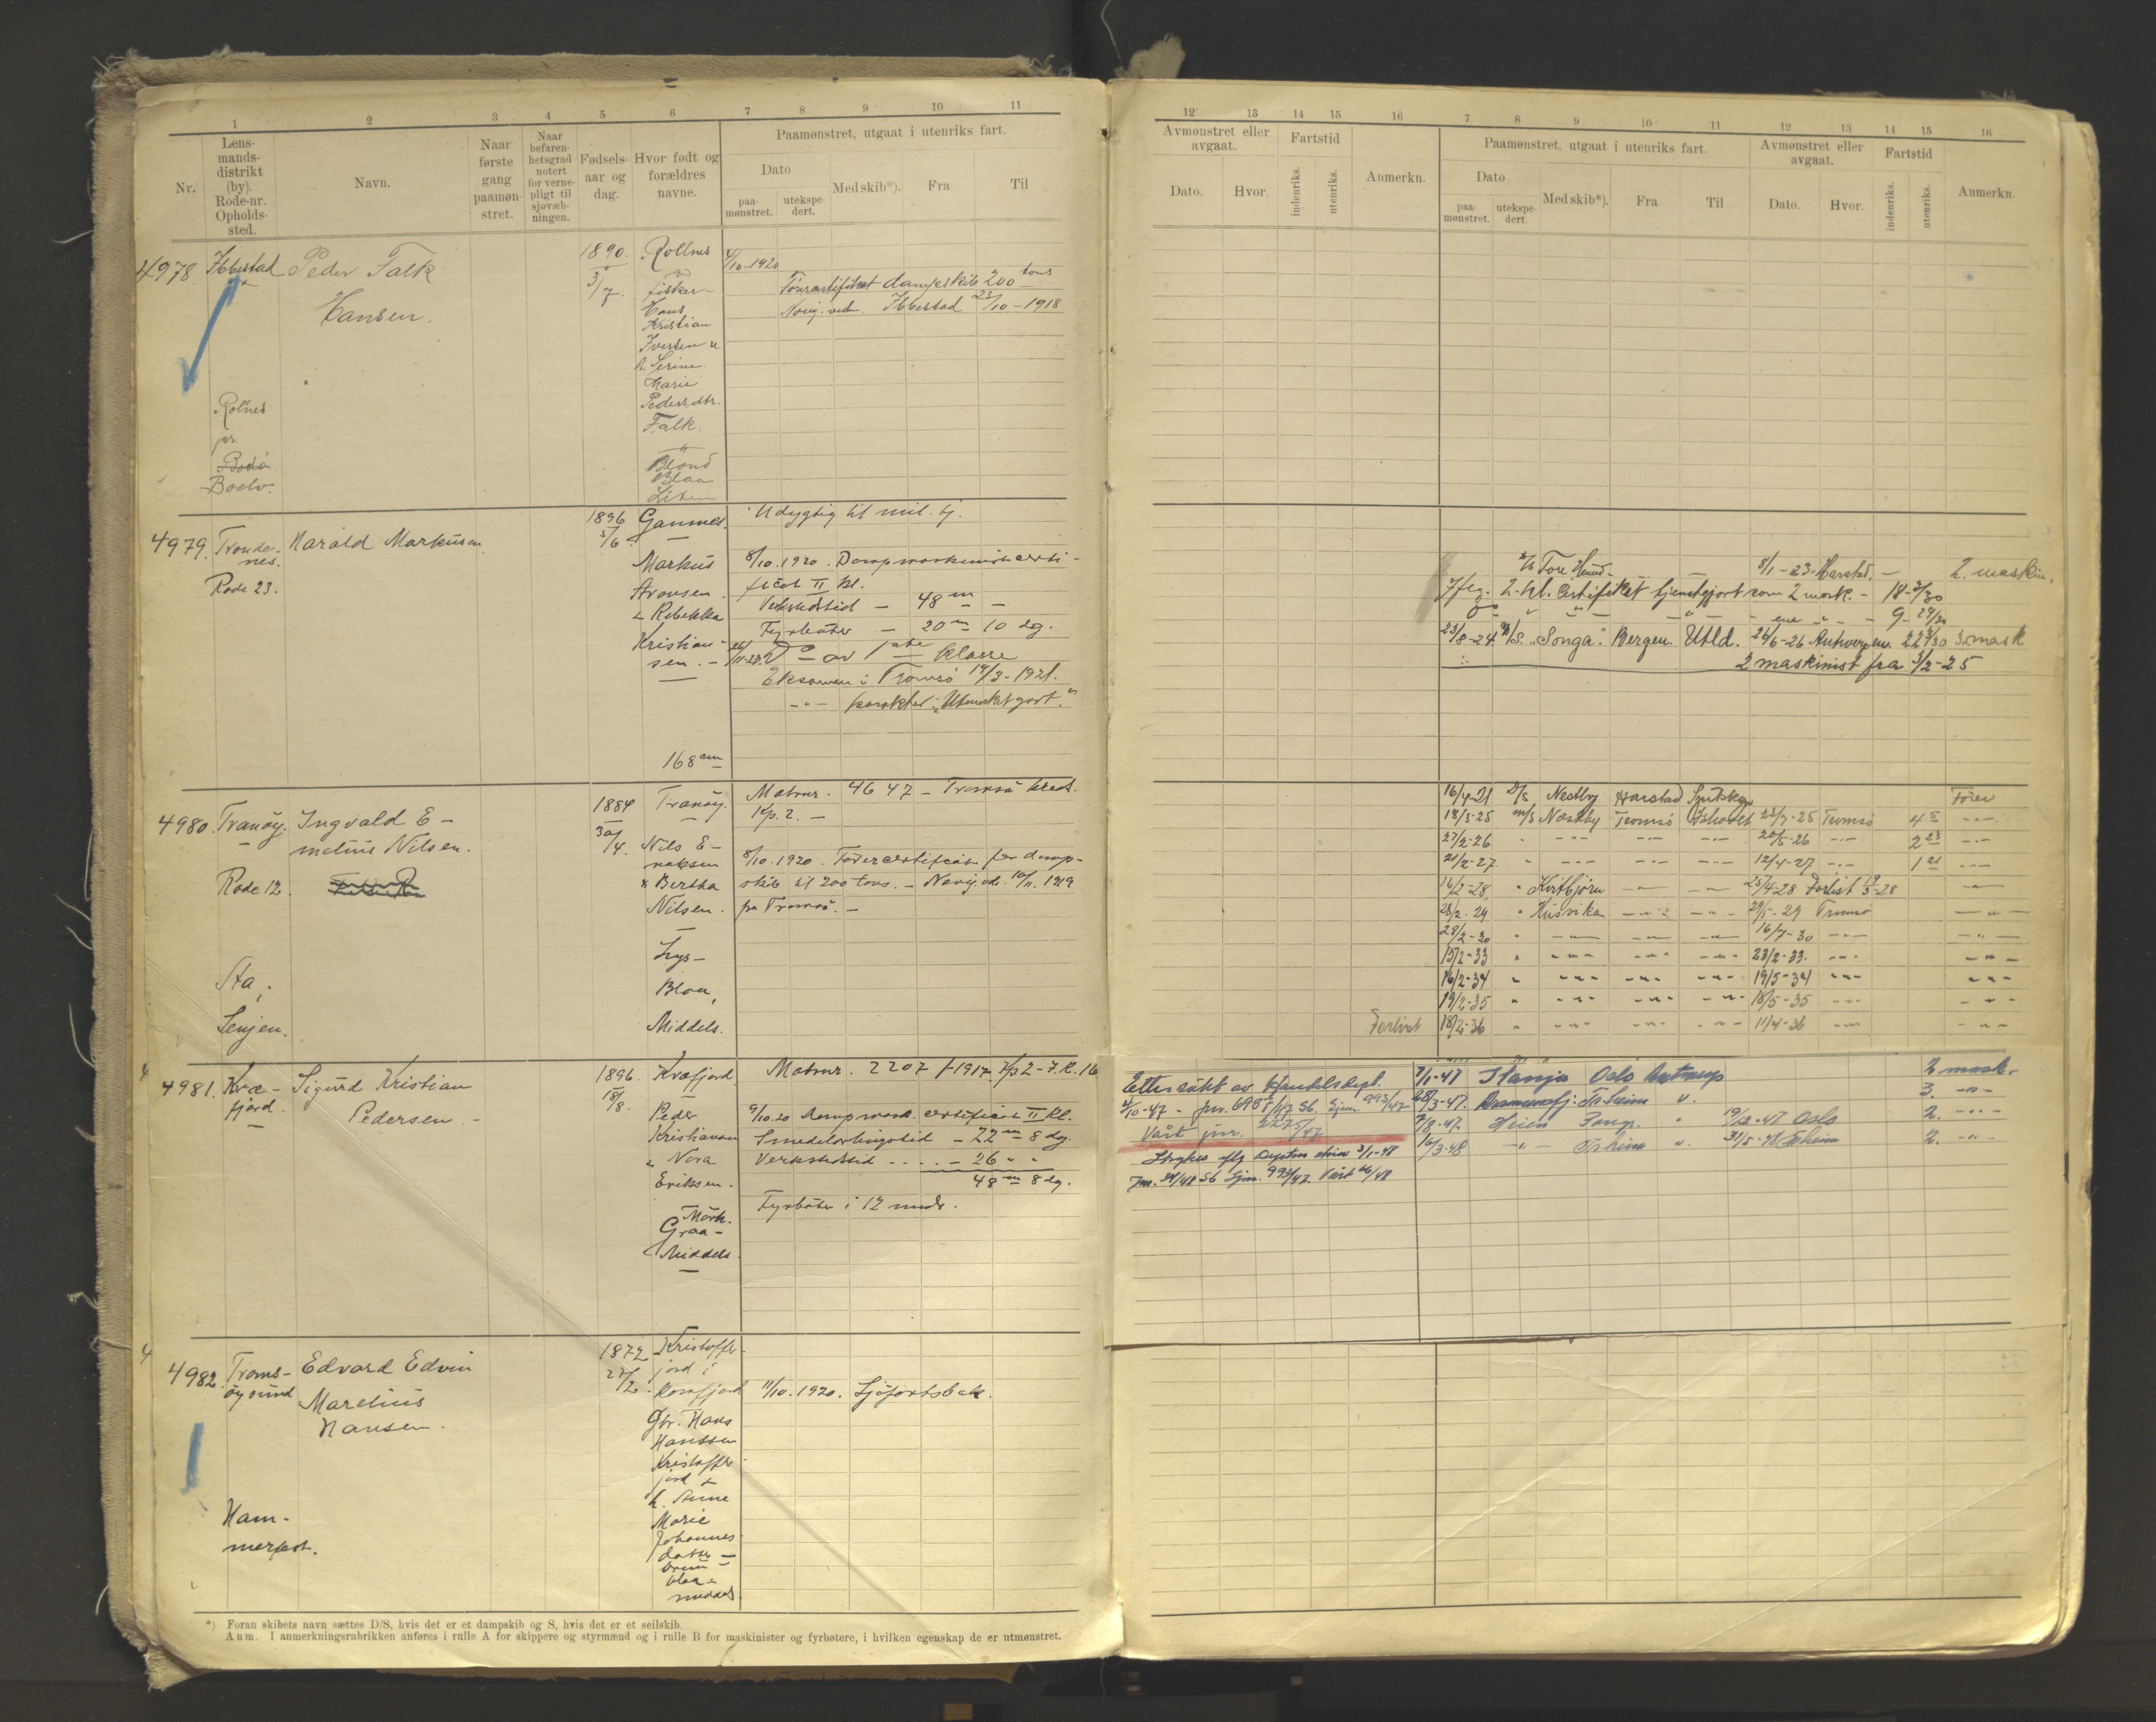 1 2 3 4 5 6 7 8 9 10 11
Nr.
Lens-
mands-
distrikt
(by).
Rode-nr.
Opholds-
sted.
Navn.
Naar
første
gang
paamøn-
stret.
Naar
befaren-
hetsgrad
notert
for verne-
pligt til
sjøvæb-
ningen.
Fødsels-
aar og
dag.
Hvor født og
forældres
navne.
Paamønstret, utgaat i utenriks fart.
Dato
paa-
mønstret.
utekspe-
dert.
Med skib*).
Fra
Til
4978 Ibbestad Peder Falk
Hansen.
Rolnes
Bodø
1890.
3/7.
Rollnes
fisker
Hans
Kristian
Iversen
h. Serine
Marie
Pedersdtr.
Falk.
Blond
Blaa
Liten
/10-1920
dampskib 200 tons
Ibbestad 23/10-1918
4979. Tronde-
nes.
Rode 23.
Harald Markusen
1896
5/6
Markus
Aronsen.
Rebekka
Kristian-
sen.
168 cm
Udygtig til mil. tj.
8/10.1920. Dampmaskinistcerti-
ficat II kl.
Verkstedstid — 48 m —
Fyrbøter — 20 m 10 dg.
av 1ste klasse
Eksamen i Tromsö 19/3-1921.
karakter: "Utmerket godt."
4980. Tranöy.
Rode 12.
Sta,
Senjen.
Ingvald E-
melius Nilsen.
1884
30/4.
Tranöy.
Nils E-
noksen
Bertha
Nilsen.
Lys-
Blaa,
Middels.
Matrnr. 4647 - Tromsö kreds.
Kp. 2. —
8/10.1920. Förercertificat for damp-
skib til 200 tons. - Navig.vdn. 10/11.1919
fra Tromsö. —
4981. Kvæ-
fjord.
Sigurd Kristian
Pedersen.
1896.
18/8.
Kvæfjord
Peder
Kristiansen
Nora
Eriksen.
Mörk.
Graa-
Middels.
Matrnr. 2207 f 1917. Kp 2 - F.R. 16
9/10.20 Dampmask. certificat II kl.
Smedelærlingstid - 22 m 8 dg.
Verkstedstid - - - - 26 " "
48 m 8 dg.
Fyrböter i 12 mndr.
4982. Troms-
öysund
Ham-
merfest.
Edvard Edvin
Marelius
Hansen.
1872
27/2.
Kristoffer-
jord i
gbr. Hans
Hanssen
Kristoffer-
jord
h. Anne
Marie
Johannes-
datter
brun
blaa
middels.
11/10.1920. Sjöfartsbok.
*) Foran skibets navn sættes D/S, hvis det er et dampskib og S, hvis det er et seilskib.
Anm. I anmerkningsrubrikken anføres i rulle A for skippere og styrmænd og i rulle B for maskinister og fyrbøtere, i hvilken egenskap de er utmønstret.
12 13 14 15 16 7 8 9 10 11 12 13 14 15 16
Avmønstret eller
avgaat.
Dato.
Hvor.
Fartstid
indenriks.
utenriks.
Anmerkn.
Paamønstret, utgaat i utenriks fart.
Dato
paa-
mønstret.
utekspe-
dert.
Med skib*).
Fra
Til
Avmønstret eller
avgaat.
Dato.
Hvor.
Fartstid
indenriks.
utenriks.
Anmerkn.
Tore Hund - 8/1-23 Harstad. - 2. maskin.
2. kl. Certifikat tjenstgjort som 2 mask. - 18-3/30
9-29/30
23/8-24 D/S. "Songa". Bergen. Utld. 26/6-26 Antwerpen 22 3/30 3. mask
2 maskinist fra 3/2-25
16/4-21 D/S Nestby Harstad Fører
18/3-25 m/s Næstby Tromsö Ishavet 23/7-25 Tromsö
27/2-26 20/5-26
21/2-27 12/4-27
16/2-28 Kvitbjörn 25/4-28 Forlist 19/3-28
28/2-29 Husvika 29/5-29 Tromsö
28/2-30 16/7-30
15/2-33 23/2-33
16/2-34 19/5-34
19/2-35 18/5-35
Forlist 18/2-36 11/4-36
Ettersökt av Handelsdept.
Vårt jnr.
/1-47 Oslo Antwerp 2 mask.
28/3-47. Tr.heim 3. -"-
/8-47. 19/12-47 Oslo 2. -"-
16/3-48 Tr.heim 31/5-48 2. -"-